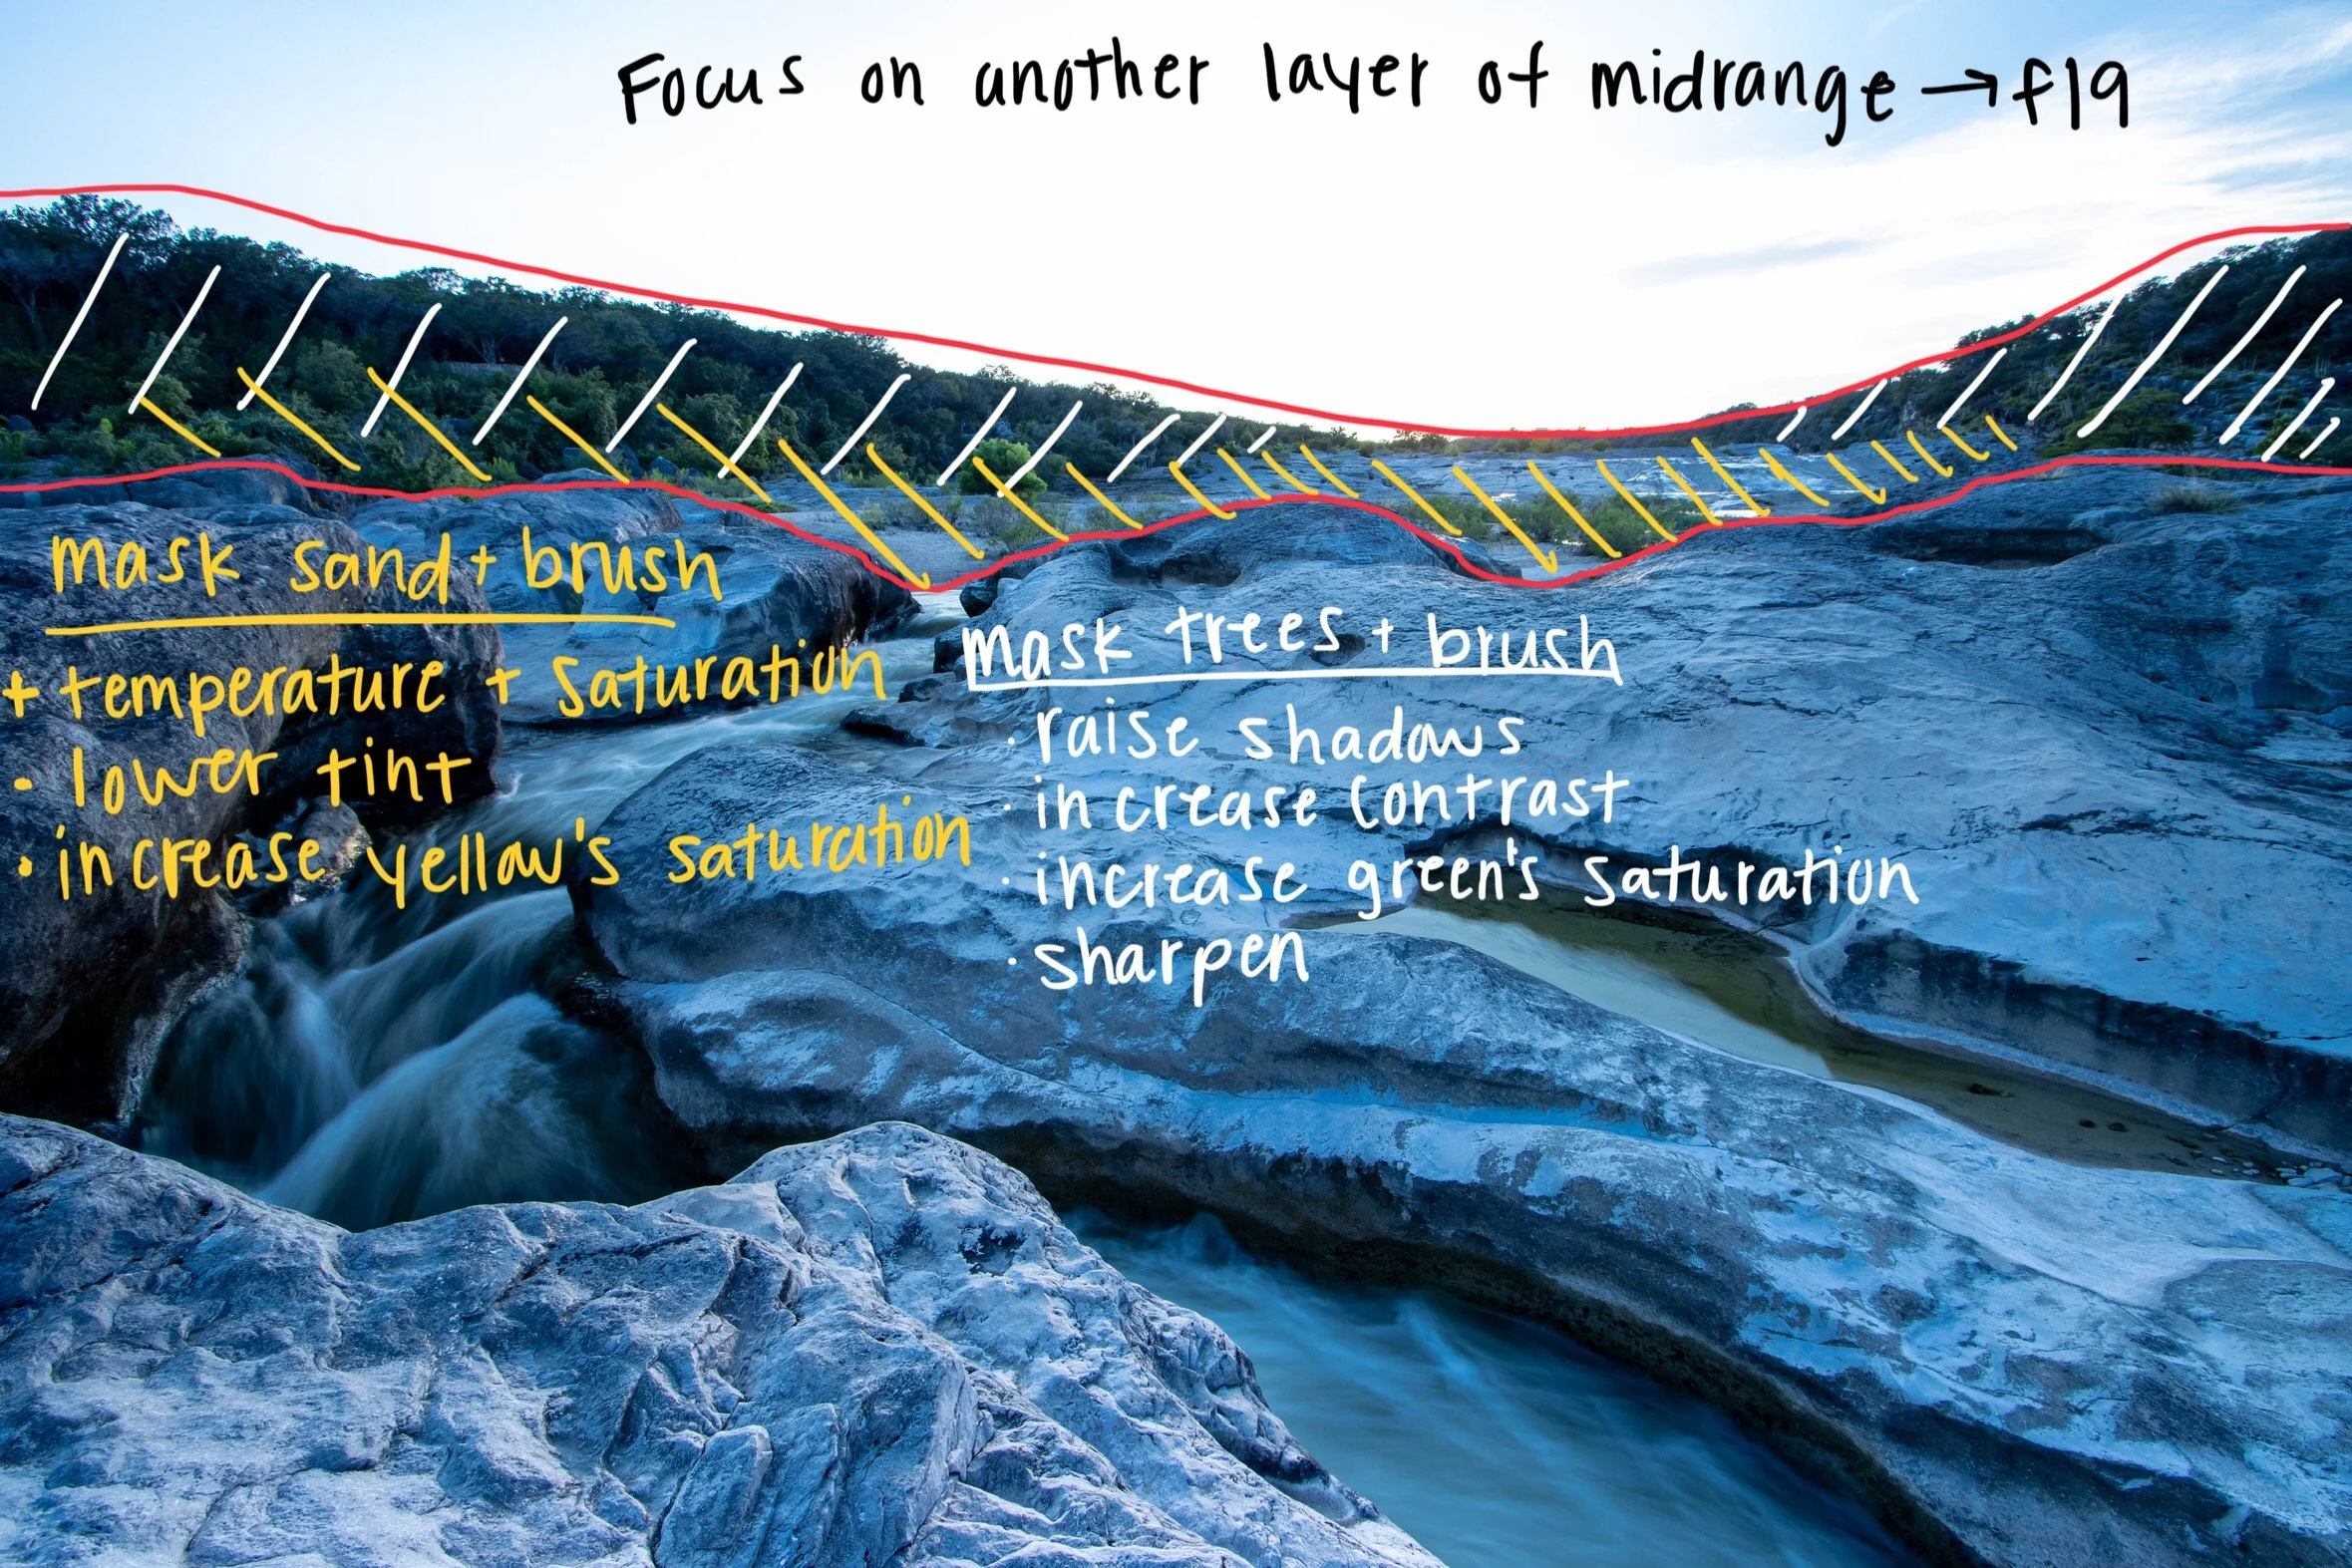 Focus on another layer of midrange → f19
mask sand + brush
+ temperature + saturation
• lower tint
• increase yellow's saturation
mask trees + brush
· raise shadows
· increase contrast
· increase green's saturation
· sharpen